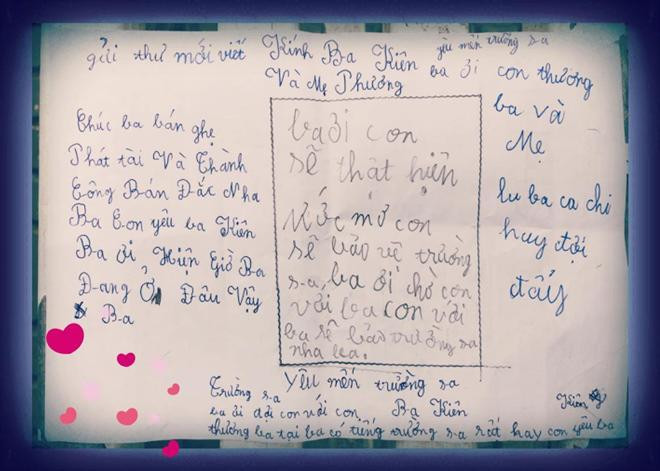 gửi thư mới viết
Kính Ba Kiên
Và Mẹ Phương
yêu mến trường sa
ba ơi con thương
ba và
Mẹ
lu ba ca chi
huy đợi
đấy
Chúc ba bán ghẹ
Phát tài Và Thành
Công Bán Đắc Nha
Ba Con yêu ba Kiên
Ba ơi Hiện Giờ Ba
Đang Ở Đâu Vậy
Ba
ba ơi con
sẽ thật hiện
Ước mơ con
sẽ bảo vệ trường
sa, ba ơi chờ con
với ba con với
ba sẽ bảo trường sa
nha ba.
Yêu mến trường sa
Trường sa
ba ơi đợi con với con
Ba Kiên
Kiên
thương ba tại ba có tiếng trường sa rất hay con yêu ba